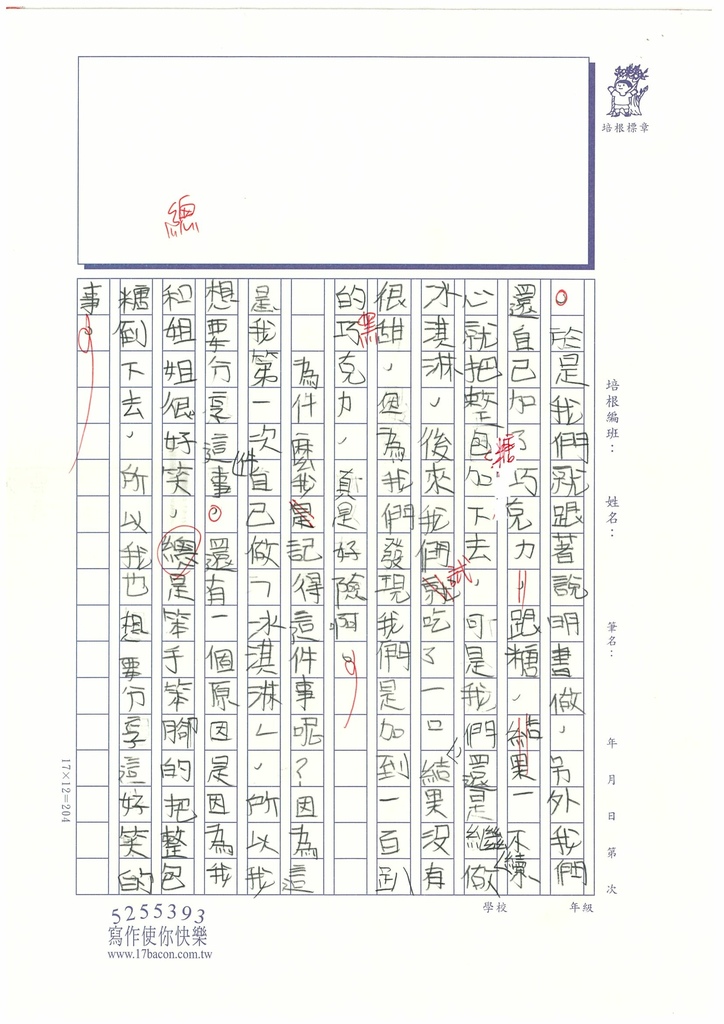 培根標章
總
培根編班：　姓名：　筆名：　年　月　日　第　次
學校　年級
於是我們就跟著說明書做，另外我們
還自己加了巧克力跟糖，結果一不
心就把整包糖加下去，可是我們還是繼續做
冰淇淋，後來我們試吃了一口結果沒有
很甜，因為我們發現我們是加到一百趴
的黑巧克力，真是好險啊
為什麼我記得這件事呢？因為這
是我第一次自己做「冰淇淋」，所以我
想要分享這件事。還有一個原因是因為我
和姐姐很好笑，總是笨手笨腳的把整包
糖倒下去，所以我也想要分享這好笑的
事
17×12=204
5255393
寫作使你快樂
www.17bacon.com.tw